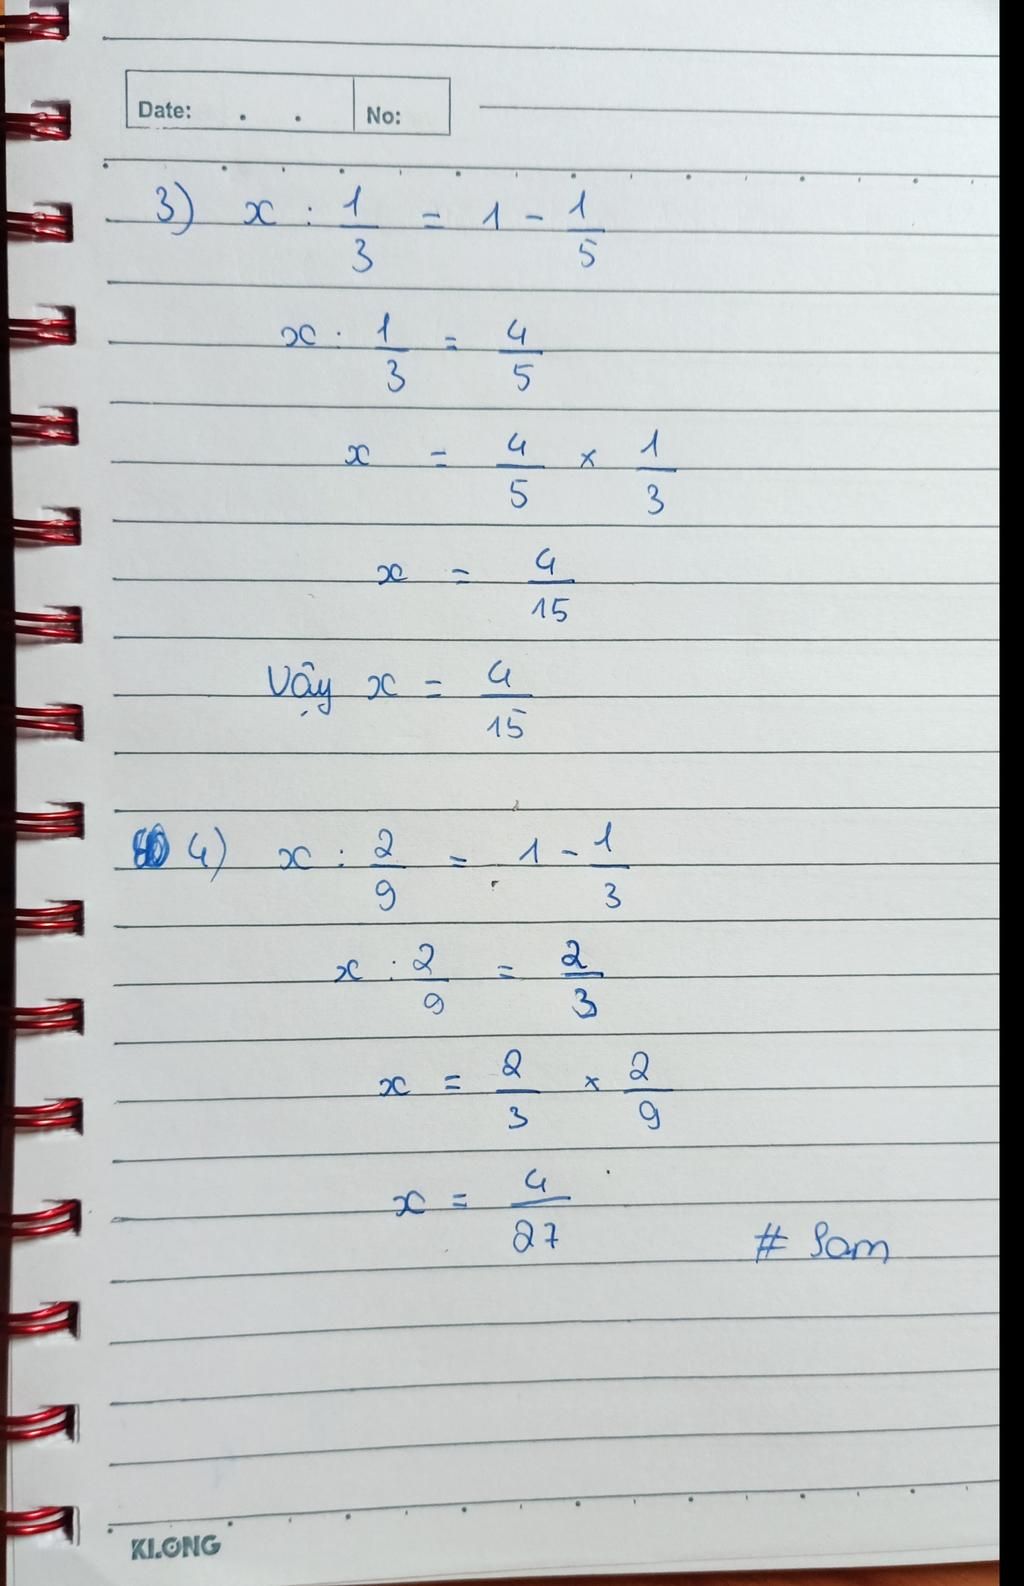 Date: . . No:
3) x : 1/3 = 1 - 1/5
x : 1/3 = 4/5
x = 4/5 × 1/3
x = 4/15
Vậy x = 4/15
4) x : 2/9 = 1 - 1/3
x : 2/9 = 2/3
x = 2/3 × 2/9
x = 4/27
# Sam
KLONG